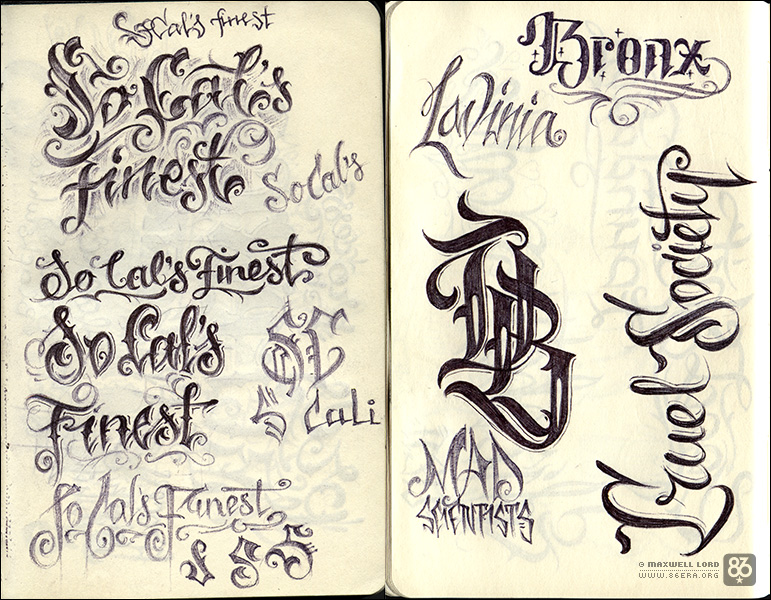 SoCal's finest
So Cal's
finest
So Cal's
So Cal's Finest
So Cal's
Finest
SC
S Cali
So Cal's Finest
S S S
Bronx
Lavinia
B
Cruel Society
MAD
SCIENTISTS
© MAXWELL LORD
WWW.86ERA.ORG
86